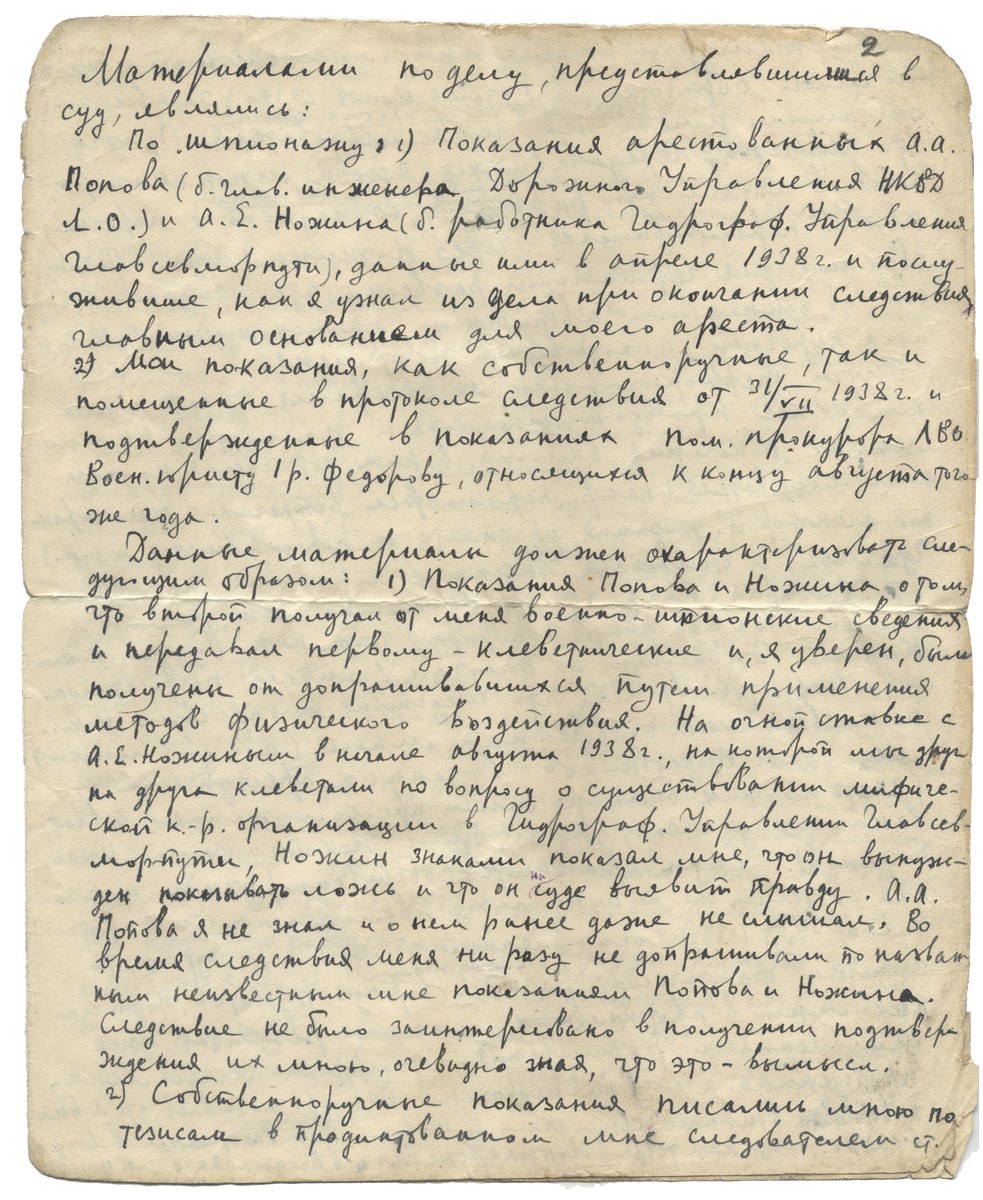 2
Материалами по делу, представлявшимися в
суд, являлись:
По шпионажу: 1) Показания арестованных А.А.
Попова (б. глав. инженера Дорожного Управления НКВД
Л.О.) и А.Е. Ножина (б. работника Гидрограф. Управления
Главсевморпути), данные ими в апреле 1938 г. и послу-
жившие, как я узнал из дела при окончании следствия,
главным основанием для моего ареста.
2) Мои показания, как собственноручные, так и
помещенные в протоколе следствия от 31/VII 1938 г. и
подтвержденные в показаниях пом. прокурора ЛВО
Воен. юристу 1 р. Федорову, относящихся к концу августа того
же года.
Данные материалы должен охарактеризовать сле-
дующим образом: 1) Показания Попова и Ножина о том,
что второй получал от меня военно-шпионские сведения
и передавал первому – клеветнические и, я уверен, были
получены от допрашивавшихся путем применения
методов физического воздействия. На очной ставке с
А.Е. Ножиным в начале августа 1938 г., на которой мы друг
на друга клеветали по вопросу о существовании мифиче-
ской к.-р. организации в Гидрограф. Управлении Главсев-
морпути, Ножин знаками показал мне, что он вынуж-
ден показывать ложь и что он на суде выявит правду. А.А.
Попова я не знал и о нем ранее даже не слышал. Во
время следствия меня ни разу не допрашивали по назван-
ным неизвестным мне показаниям Попова и Ножина.
Следствие не было заинтересовано в получении подтвер-
ждения их мною, очевидно зная, что это – вымысел.
2) Собственноручные показания писались мною по
тезисам в продиктованном мне следователем ст.